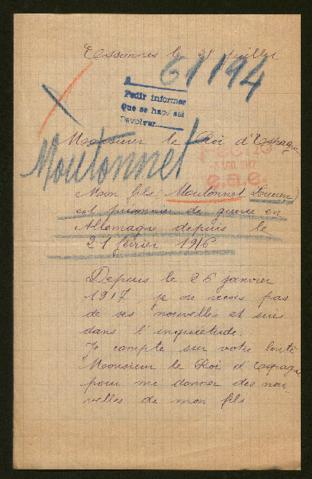 Essonnes le 21 juillet
61194
A
Pedir informer
Que se haga así
Devolver
Monsieur le Roi d'Espagne
Moutonnet
Mon fils Moutonnet
est prisonnier de guerre en
Allemagne depuis le
21 février 1916
Depuis le 26 janvier
1917 je ne reçois pas
de ses nouvelles et suis
dans l'inquiétude.
Je compte sur votre bonté
Monsieur le Roi d'Espagne
pour me donner des nou-
velles de mon fils